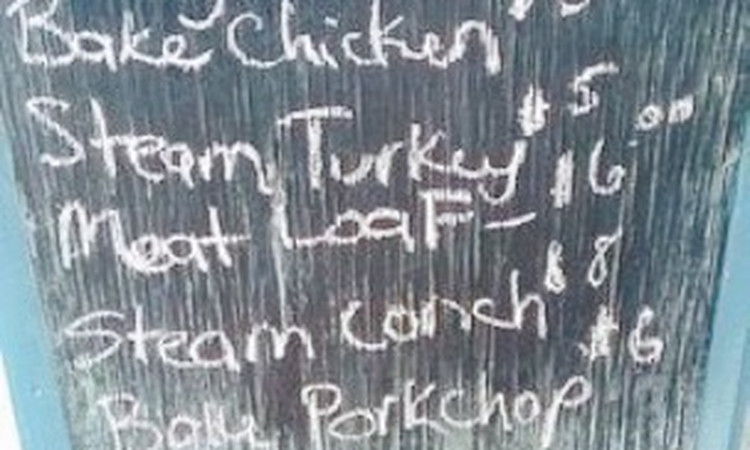 Bake Chicken
Steam Turkey $5
Meat LoaF - $6.00
Steam Conch $8
Bake Porkchop $6